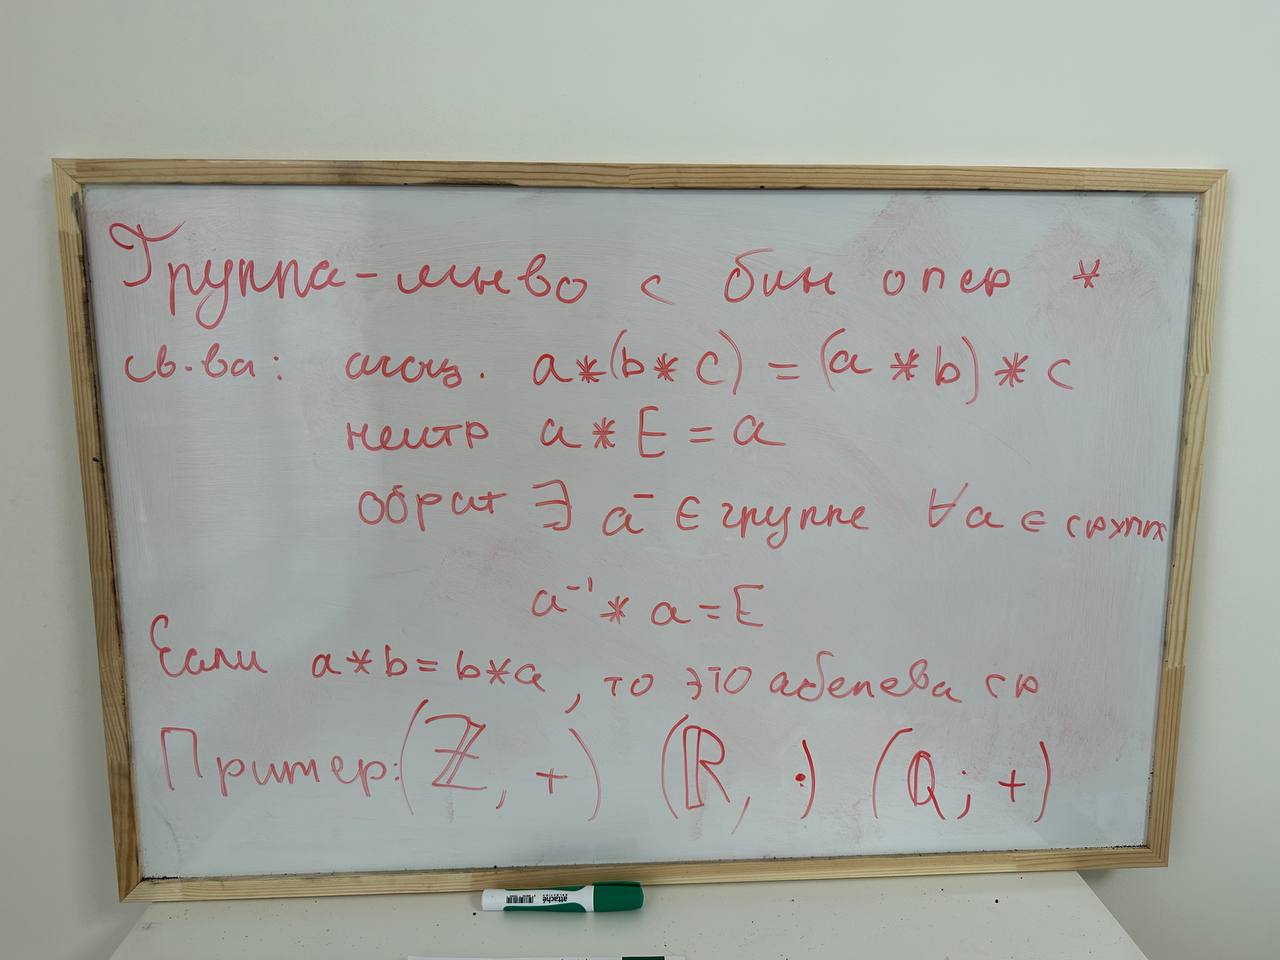 Группа - мн-во с бин опер *
св.ва: ассоц. a*(b*c) = (a*b)*c
нейтр a*E = a
обрат ∃ a⁻ ∈ группе ∀a ∈ групп
a⁻¹ * a = E
Если a*b = b*a, то это абелева гр
Пример: (ℤ, +) (ℝ, ·) (ℚ; +)
attaché